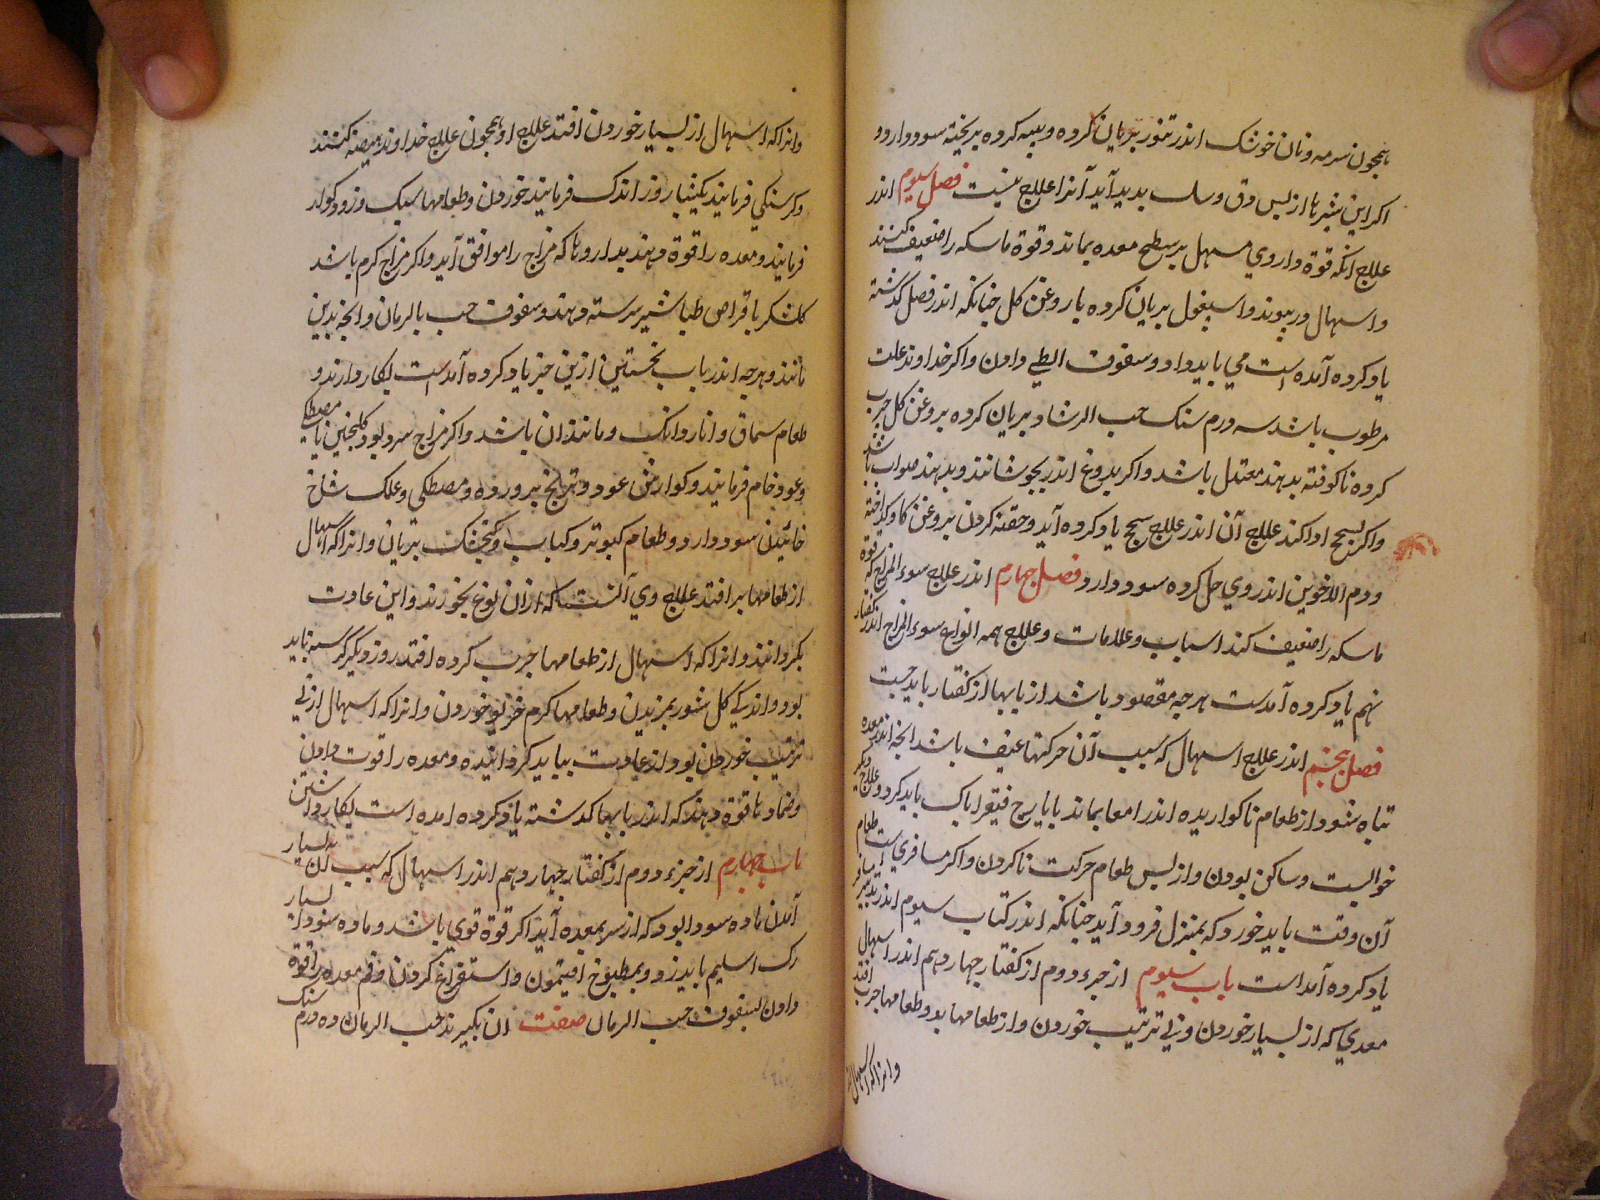 همچون سرمه و نان خوشک اندر تنور بریان کرده و پیه کرده بریخته سود دارد و
اکر این شیرها از پس دق و سل بدید آید آنرا علاج نیست فصل سیوم اندر
علاج انکه قوة داروي مسهل بر سطح معده بماند و قوة ماسکه را ضعیف کنند
و اسهال دربیوند و اسبغول بریان کرده با روغن کل جنانکه اندر فصل کذشته
یاد کرده آمده است مي باید داد و سفوف الطین دادن و اکر خداوند علت
مرطوب باشد سه درم سنک حب الرشاد بریان کرده بروغن کل جرب
کرده ناکوفته بدهند معتدل باشد و اکر بدوغ اندر بجوشانند و بدهند صواب باشد
و اکر سحج ادا کند علاج آن اندر علاج سحج یاد کرده آید و حقنه کردن بروغن کاو کداخته
و دم الاخوین اندر وي حل کرده سود دارد فصل جهارم اندر علاج سوء المزاج که قوة
ماسکه را ضعیف کند اسباب و علامات و علاج همه انواع سوء المزاج اندر کفتار
نهم یاد کرده آمدست هرجه مقصود باشد از بابها از کفتار باید جست
فصل بنجم اندر علاج اسهال که سبب آن حرکتها عنیف باشد انجه اندر معده
تباه شود از طعام ناکواریده اندر امعا بماند بایارج فیقرا باک باید کرد و علاج دیکر
خوابست و ساکن بودن و از پس طعام حرکت ناکردن و اکر مسافري است طعام
آن وقت باید خورد که بمنزل فرود آید جنانکه اندر کتاب سیوم اندر تدبیر مسافر
یاد کرده آمداست باب سیوم از جزء دوم از کفتار جهاردهم اندر اسهال
معدي که از بسیار خوردن و بي ترتیب خوردن و از طعامها بد و طعامها جرب افتد
و انراکه اسهال
و انراکه اسهال از بسیار خوردن افتد علاج او همجون علاج خداوند هیضه کنند
و کرسنکي فرمایند یکشبا روز اندک فرمایند خوردن و طعامها سبک و زود کوار
فرمایند و معده را قوة دهند بداروها که مزاج را موافق آید و اکر مزاج کرم باشد
کلشکر با قراص طباشیر سرشته دهند و سفوف حب الرمان و انجه بدین
مانند و هرجه اندر باب نخستین ازین جز یاد کرده آمدست بکار دارند و
طعام سماق و اناردانک و مانند ان باشد و اکر مزاج سرد بود کلنجبین با مصطکي
و عود خام فرمایند و کوارش عود و ترنج بروده و مصطکي و علک شاخ
خائیدن سود دارد و طعام کبوتر و کباب و کنجشک بریان و انراکه اسهال
از طعامها بد افتد علاج وي آنست که از ان نوع نخورند و این عادت
بکردانند و انراکه اسهال از طعامها جرب کرده افتد روز دیکر کرسنه باید
بود و اندکي کل شور بمزیدن و طعامها کرم خز بو خوردن و انراکه اسهال از بي
ترتیب خوردن بود از عادت بباید کردانیده و معده را قوت دادن
و ضمادها قوة دهند که اندر بابها کذشته یاد کرده امده است بکار داشتن
باب جهارم از جزء دوم از کفتار جهاردهم اندر اسهال که سبب آن بسیار
آمدن ماده سودا بود که از سبر بمعده آید اکر قوة قوي باشد و ماده سودا بسیار
رک اسلیم باید زد و بمطبوخ افیتمون و استفراغ کردن و فم معده را قوة
دادن بسفوف حب الرمان صفت ان بکیرند حب الرمان ده درم سنک